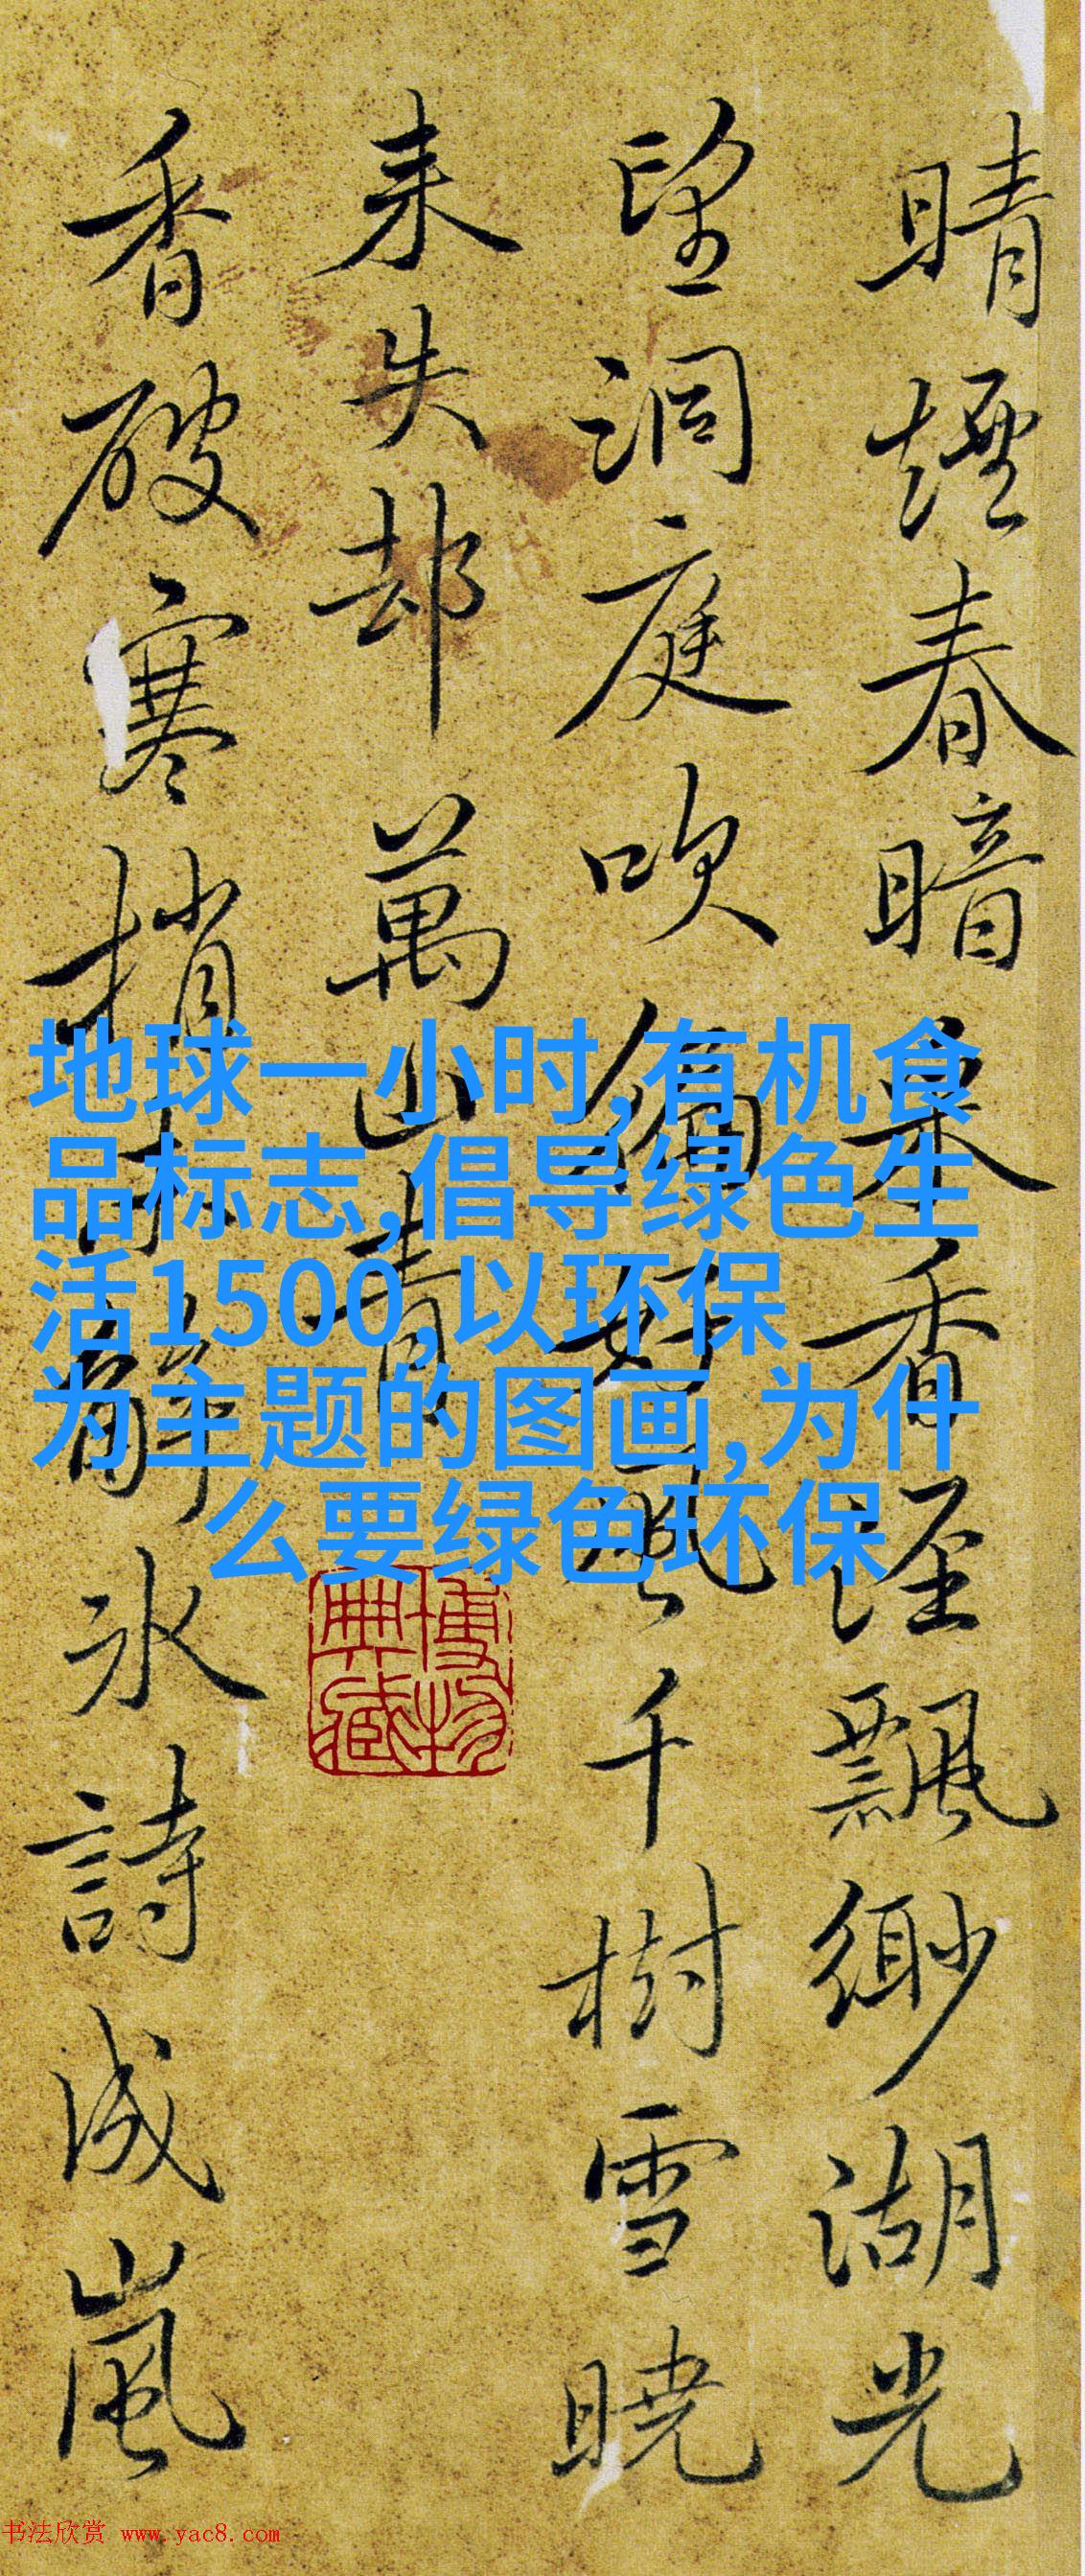 晴煙春暗香徑飄緲湖光
望洞庭吹風千樹雪曉
来失却萬山青
香破寒梢解冰詩成嵐
地球一小时,有机食
品标志,倡导绿色生
活1500,以环保
为主题的图画,为什
么要绿色环保
博物
典藏
书法欣赏 www.yac8.com